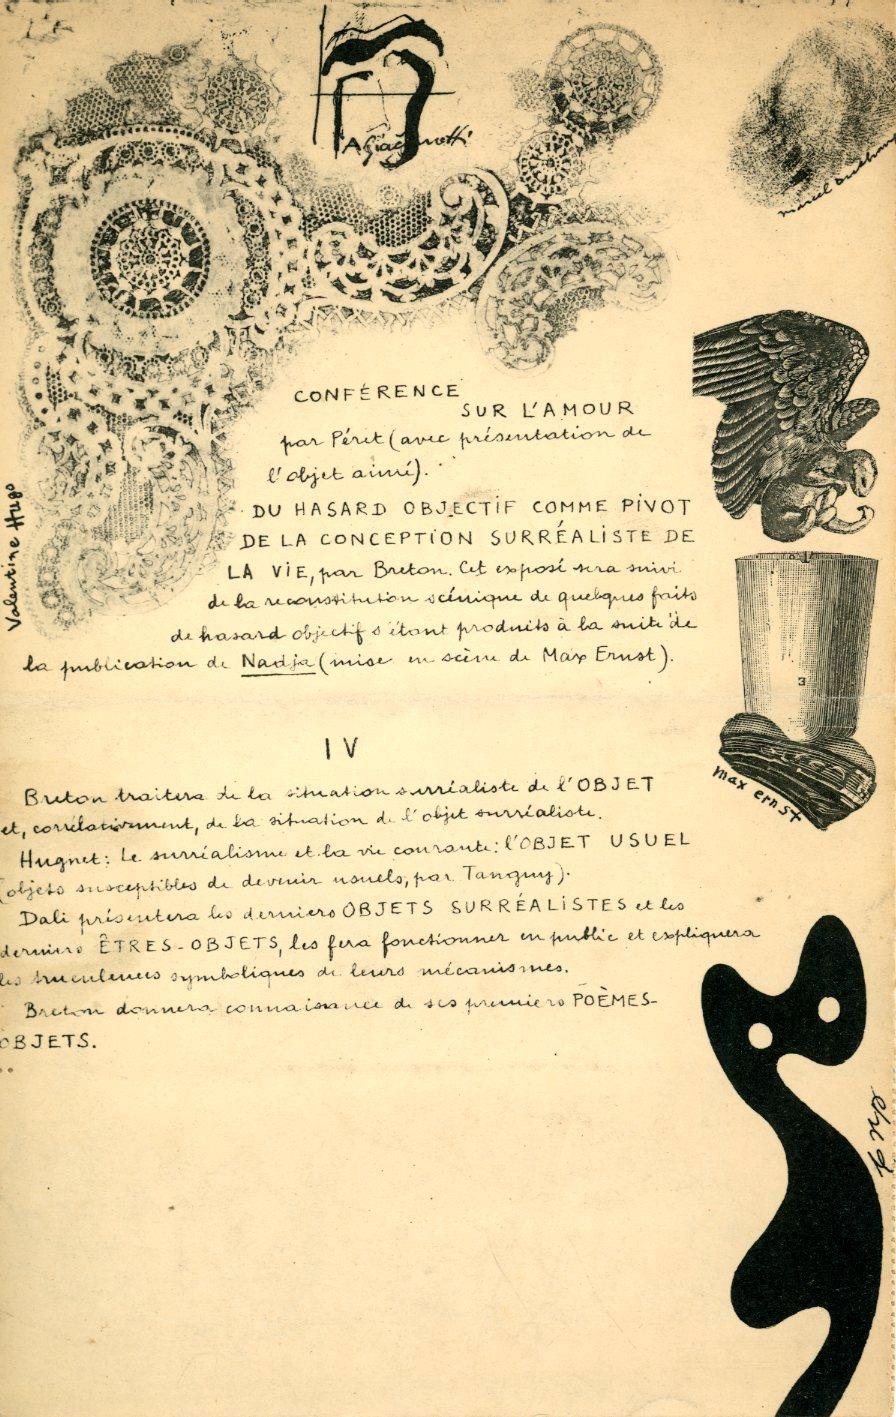 A Giacometti
marcel duchamp
CONFÉRENCE
SUR L'AMOUR
par Péret (avec présentation de
l'objet aimé).
DU HASARD OBJECTIF COMME PIVOT
DE LA CONCEPTION SURRÉALISTE DE
LA VIE, par Breton. Cet exposé sera suivi
de la reconstitution scénique de quelques faits
de hasard objectif s'étant produits à la suite de
la publication de Nadja (mise en scène de Max Ernst).
Valentine Hugo
1
3
max ernst
IV
Breton traitera de la situation surréaliste de l'OBJET
et, corrélativement, de la situation de l'objet surréaliste.
Hugnet: Le surréalisme et la vie courante: l'OBJET USUEL
(objets susceptibles de devenir usuels, par Tanguy).
Dali présentera les derniers OBJETS SURRÉALISTES et les
derniers ÊTRES-OBJETS, les fera fonctionner en public et expliquera
les truculences symboliques de leurs mécanismes.
Breton donnera connaissance de ses premiers POÈMES-
OBJETS.
arp